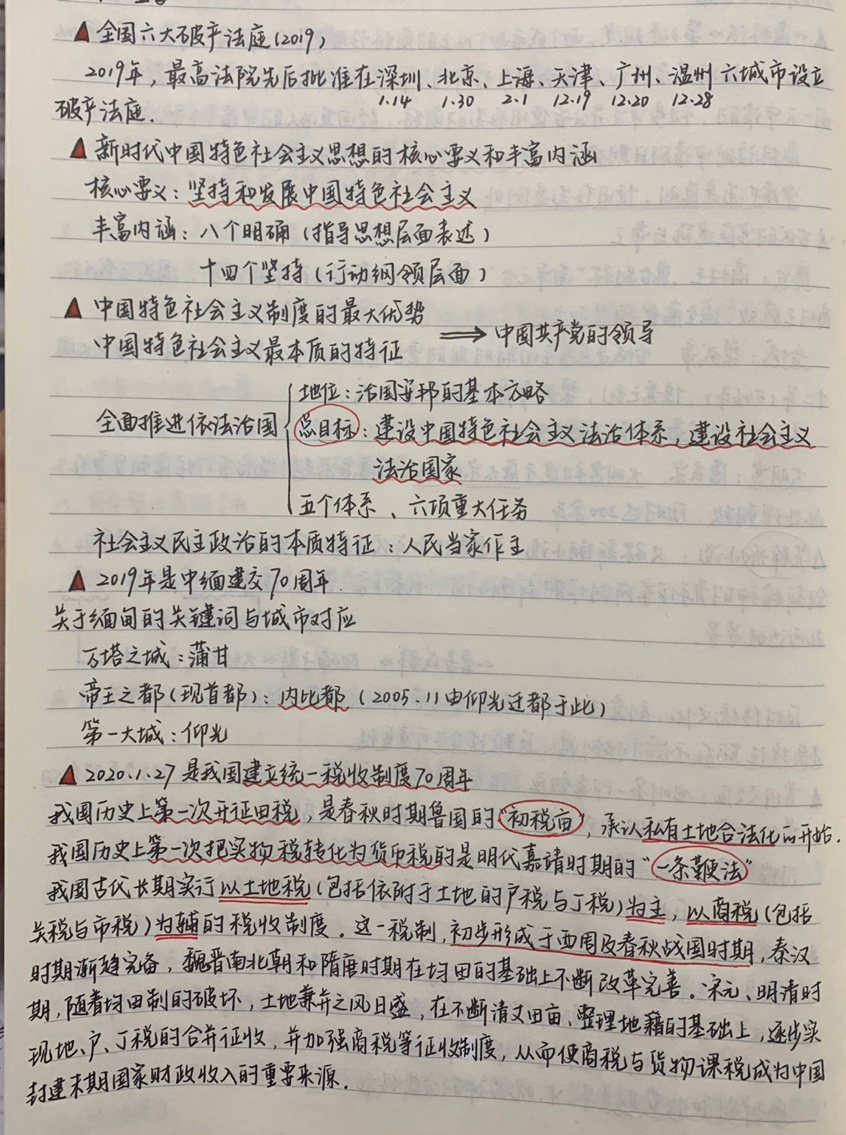 ▲ 全国六大破产法庭(2019)
2019年，最高法院先后批准在深圳、北京、上海、天津、广州、温州六城市设立
1.14 1.30 2.1 12.19 12.20 12.28
破产法庭.
▲ 新时代中国特色社会主义思想的核心要义和丰富内涵
核心要义：坚持和发展中国特色社会主义
丰富内涵：八个明确（指导思想层面表述）
十四个坚持（行动纲领层面）
▲ 中国特色社会主义制度的最大优势
⟹ 中国共产党的领导
中国特色社会主义最本质的特征
地位：治国安邦的基本方略
全面推进依法治国 总目标：建设中国特色社会主义法治体系，建设社会主义
法治国家
五个体系、六项重大任务
社会主义民主政治的本质特征：人民当家作主
▲ 2019年是中缅建交70周年.
关于缅甸的关键词与城市对应
万塔之城：蒲甘
帝王之都（现首都）：内比都（2005.11由仰光迁都于此）
第一大城：仰光
▲ 2020.1.27是我国建立统一税收制度70周年
我国历史上第一次开征田税，是春秋时期鲁国的“初税亩”，承认私有土地合法化的开始.
我国历史上第一次把实物税转化为货币税的是明代嘉靖时期的“一条鞭法”
我国古代长期实行以土地税（包括依附于土地的户税与丁税）为主，以商税（包括
关税与市税）为辅的税收制度。这一税制，初步形成于西周及春秋战国时期，秦汉
时期渐趋完备，魏晋南北朝和隋唐时期在均田的基础上不断改革完善。宋元、明清时
期，随着均田制的破坏，土地兼并之风日盛，在不断清丈田亩、整理地籍的基础上，逐步实
现地、户、丁税的合并征收，并加强商税等征收制度，从而使商税与货物课税成为中国
封建末期国家财政收入的重要来源.